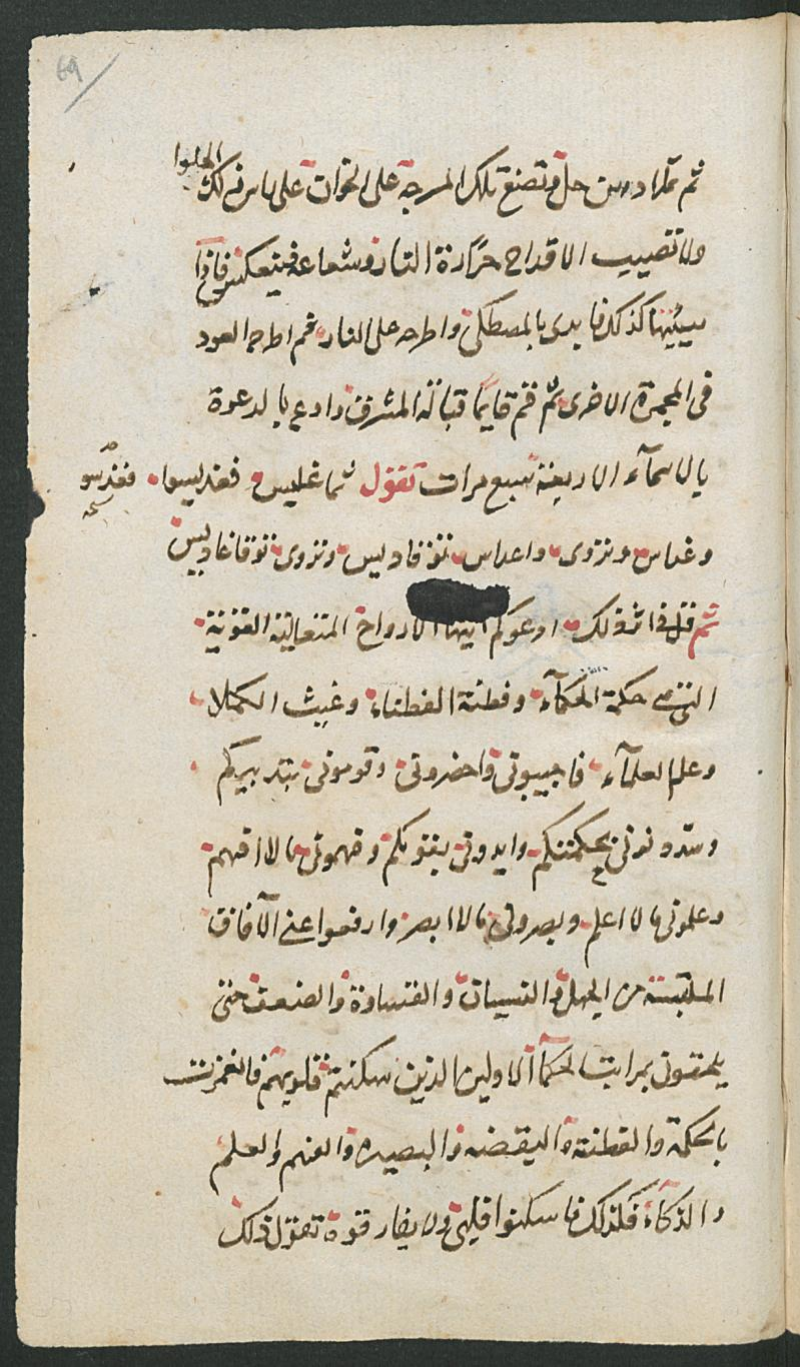 69
ثم تملا دوسن حل وتضع تلك المسرجة على الخوان على راس ذلك الحلوا
ولا تصيب الاقداح حرارة النار وشعاعه فينعكس فاذا
هيئتها كذلك فابدى بالمصطكى واطرحه على النار ثم اطرح العود
فى المجمرة الاخرى ثم قم قايما قبالة المشرق وادع بالدعوة
بالاسمآء الاربعة سبع مرات تقول تماغليس فعديسوا فغدسو نسخه
وغداس ونزوى واعداس نوفاديس ونزوى نوقاغاديس
ثم قل فى اثر ذلك ادعوكم ايتها الارواح المتعالية القوية
التى هى حكمة الحكمآء وفطنة الفطناء وغيث الكملا
وعلم العلمآء فاجيبونى واحضرونى وقومونى بتدبيركم
وسددونى بحكمتكم وايدونى بقوتكم وفهمونى ما لا افهم
وعلمونى ما لا اعلم وبصرونى ما لا ابصر وارفعوا عنى الآفات
الملتبسة من الجهل والنسيان والقساوة والضعف حتى
يلحقونى بمراتب الحكمآ الاولين الذين سكنتم قلوبهم فالغمرت
بالحكمة والفطنة واليقضه والبصيره والفهم والعلم
والذكآء فلذلك فاسكنوا قلبى ولا يفارقوه تقول ذلك